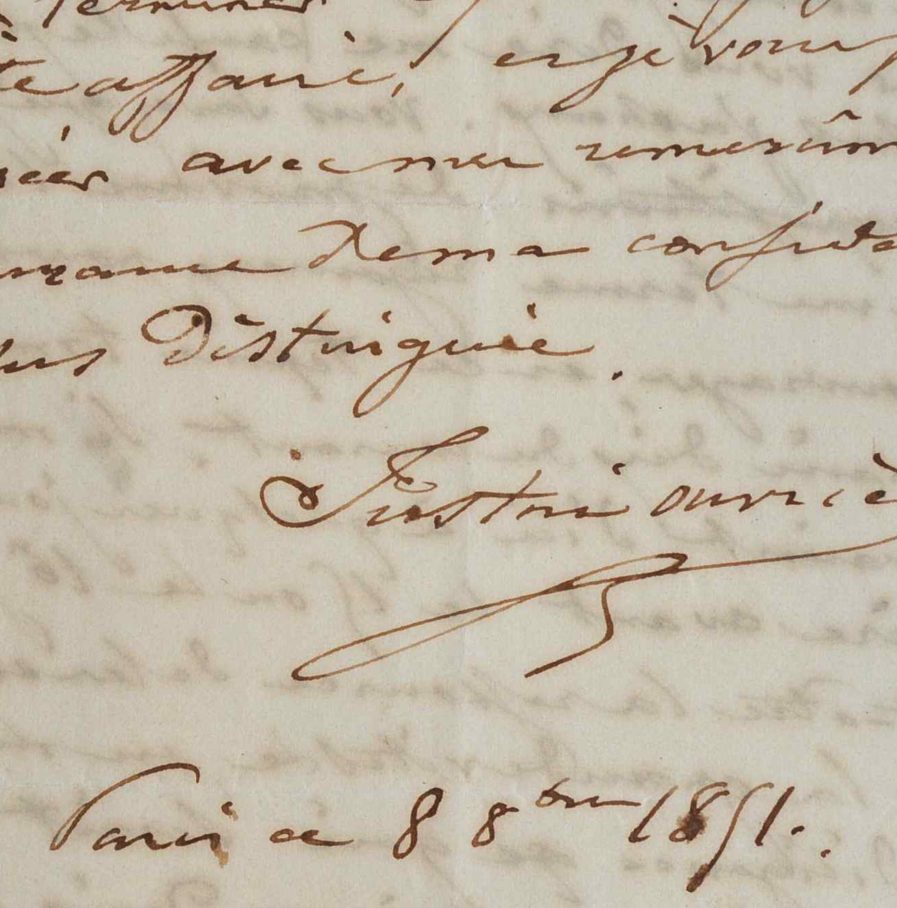 terminer
te affaire, et je vous
réer avec mes remercîm
urance de ma considé
lus Distinguée.
Justin ouvriè
Paris ce 8 8bre 1851.